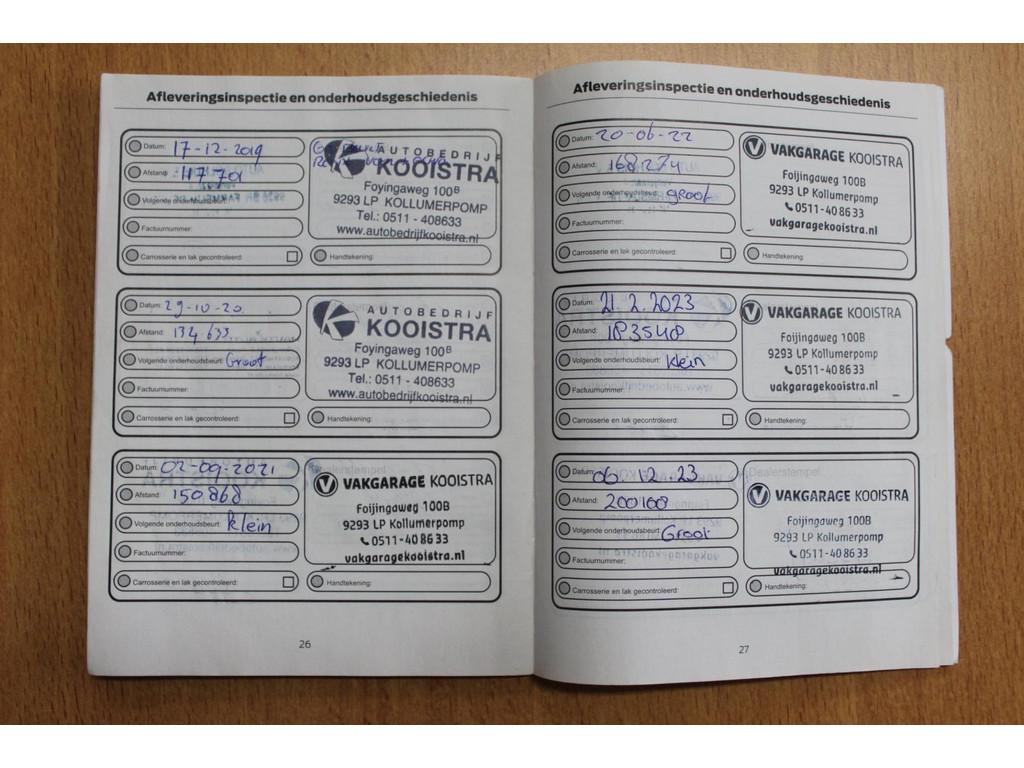 Afleveringsinspectie en onderhoudsgeschiedenis
Datum: 17-12-2019
Afstand: 11770
Volgende onderhoudsbeurt:
Factuurnummer:
Carrosserie en lak gecontroleerd:
AUTOBEDRIJF
KOOISTRA
Foyingaweg 100B
9293 LP KOLLUMERPOMP
Tel.: 0511 - 408633
www.autobedrijfkooistra.nl
Handtekening:
Datum: 29-10-20
Afstand: 134 633
Volgende onderhoudsbeurt: Groot
Factuurnummer:
Carrosserie en lak gecontroleerd:
AUTOBEDRIJF
KOOISTRA
Foyingaweg 100B
9293 LP KOLLUMERPOMP
Tel.: 0511 - 408633
www.autobedrijfkooistra.nl
Handtekening:
Datum: 02-09-2021
Afstand: 150868
Volgende onderhoudsbeurt: klein
Factuurnummer:
Carrosserie en lak gecontroleerd:
VAKGARAGE KOOISTRA
Foijingaweg 100B
9293 LP Kollumerpomp
0511-40 86 33
vakgaragekooistra.nl
Handtekening:
26
Afleveringsinspectie en onderhoudsgeschiedenis
Datum: 20-06-22
Afstand: 168274
Volgende onderhoudsbeurt: groot
Factuurnummer:
Carrosserie en lak gecontroleerd:
VAKGARAGE KOOISTRA
Foijingaweg 100B
9293 LP Kollumerpomp
0511-40 86 33
vakgaragekooistra.nl
Handtekening:
Datum: 21.2.2023
Afstand: 183548
Volgende onderhoudsbeurt: klein
Factuurnummer:
Carrosserie en lak gecontroleerd:
VAKGARAGE KOOISTRA
Foijingaweg 100B
9293 LP Kollumerpomp
0511-40 86 33
vakgaragekooistra.nl
Handtekening:
Datum: 06.12.23
Afstand: 200168
Volgende onderhoudsbeurt: Groot
Factuurnummer:
Carrosserie en lak gecontroleerd:
Dealerstempel
VAKGARAGE KOOISTRA
Foijingaweg 100B
9293 LP Kollumerpomp
0511-40 86 33
vakgaragekooistra.nl
Handtekening:
27